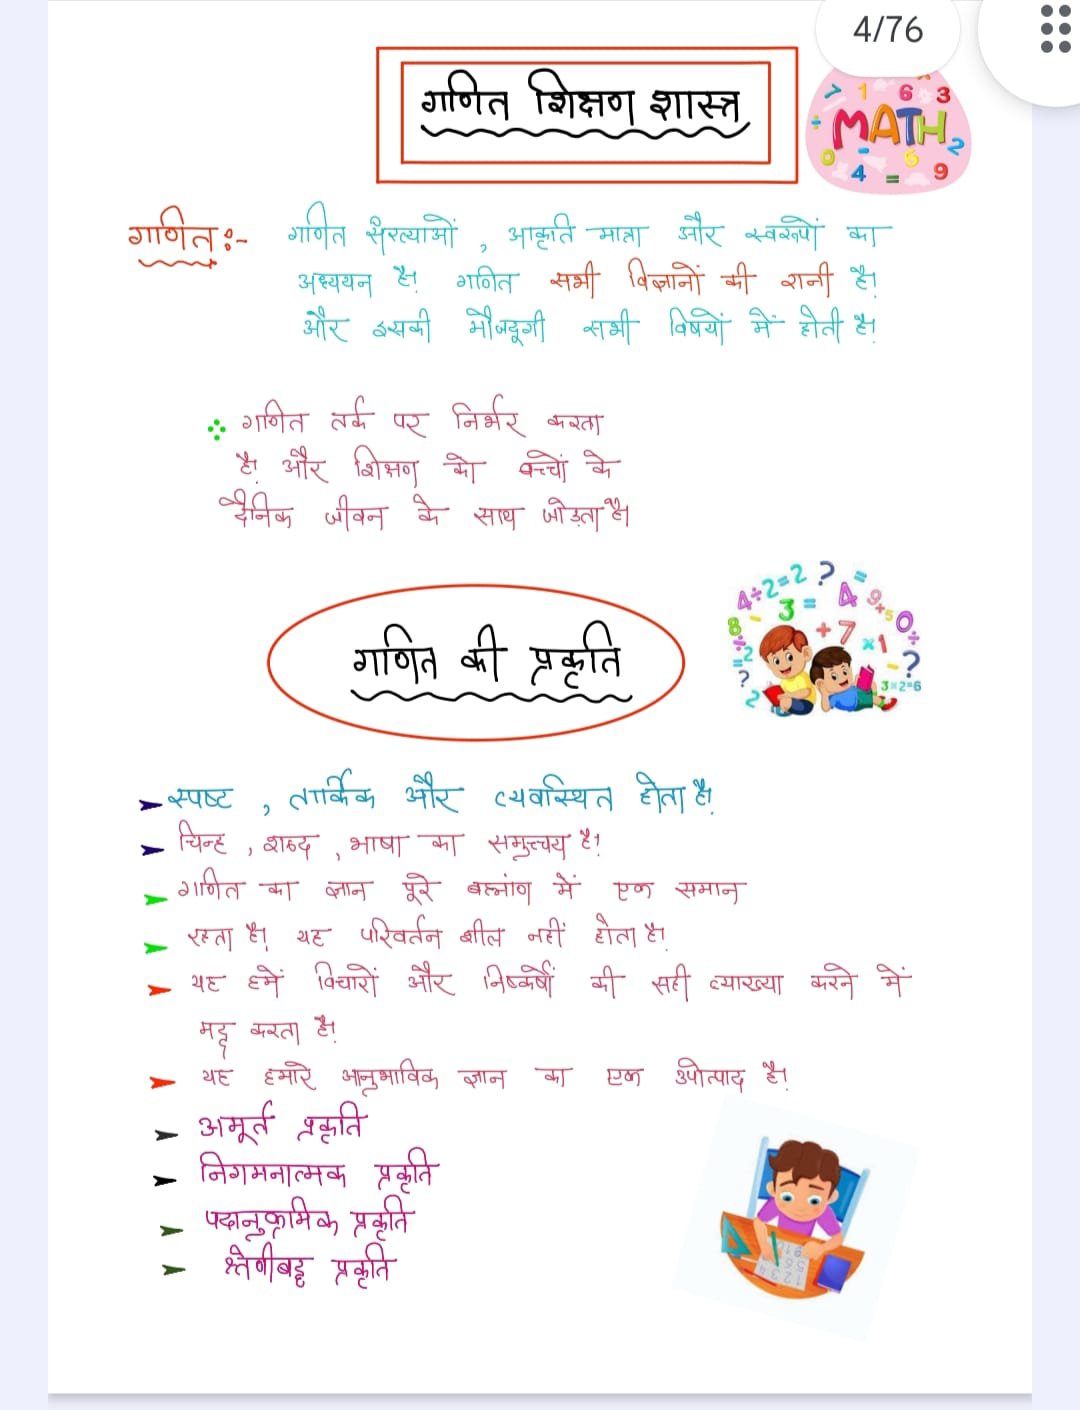 4/76
गणित शिक्षण शास्त्र
MATH
गणित:- गणित संख्याओं , आकृति मात्रा और स्वरूपों का
अध्ययन है। गणित सभी विज्ञानों की रानी है।
और इसकी मौजदूगी सभी विषयों में होती है।
गणित तर्क पर निर्भर करता
है। और शिक्षण को बच्चों के
दैनिक जीवन के साथ जोड़ता है।
गणित की प्रकृति
स्पष्ट , तार्किक और व्यवस्थित होता है।
चिन्ह , शब्द , भाषा का समुच्चय है।
गणित का ज्ञान पूरे में एक समान
रहता है। यह परिवर्तन शील नहीं होता है।
यह हमें विचारों और निष्कर्षों की सही व्याख्या करने में
मदद करता है।
यह हमारे आनुभाविक ज्ञान का एक उपोत्पाद है।
अमूर्त प्रकृति
निगमनात्मक प्रकृति
पदानुक्रमिक प्रकृति
श्रेणीबद्ध प्रकृति